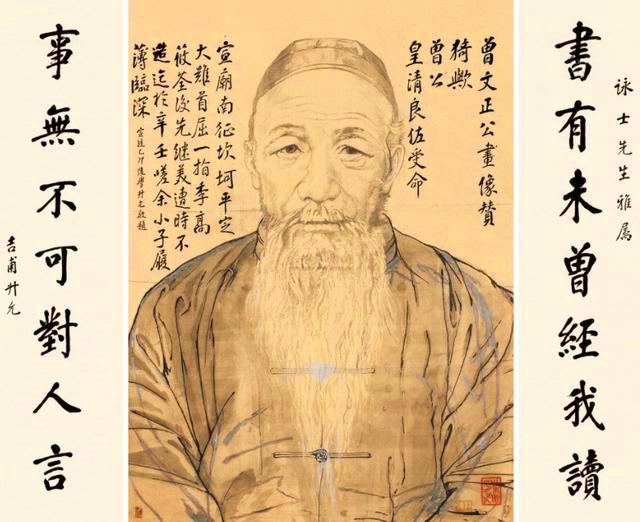 書有未曾經我讀
詠士先生雅属
曾文正公畫像贊
猗歟
曾公
皇清良佐受命
宣廟南征坎坷平定
大難首屈一指季高
筱荃後先繼美遭時不
造迄於辛壬嗟余小子履
薄臨深
宣統乙卯後學升允敬題
事無不可對人言
吉甫升允